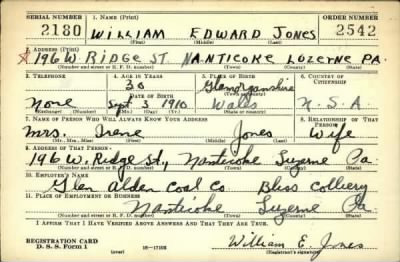 SERIAL NUMBER 1. NAME (Print) ORDER NUMBER
2180 WILLIAM EDWARD JONES 2542
(First) (Middle) (Last)
2. ADDRESS (Print)
X 196 W RIDGE ST. NANTICOKE LUZERNE PA.
(Number and street or R. F. D. number) (Town) (County) (State)
3. TELEPHONE 4. AGE IN YEARS 5. PLACE OF BIRTH 6. COUNTRY OF CITIZENSHIP
30 Glamorganshire
DATE OF BIRTH (Town or county)
None Sept 3 1910 Wales U.S.A.
(Exchange) (Number) (Mo.) (Day) (Yr.) (State or country)
7. NAME OF PERSON WHO WILL ALWAYS KNOW YOUR ADDRESS 8. RELATIONSHIP OF THAT PERSON
Mrs. Irene Jones Wife
(Mr., Mrs., Miss) (First) (Middle) (Last)
9. ADDRESS OF THAT PERSON
196 W. Ridge St., Nanticoke Luzerne Pa.
(Number and street or R. F. D. number) (Town) (County) (State)
10. EMPLOYER'S NAME
Glen Alden Coal Co. Bliss Colliery
11. PLACE OF EMPLOYMENT OR BUSINESS
Nanticoke Luzerne Pa
(Number and street or R. F. D. number) (Town) (County) (State)
I AFFIRM THAT I HAVE VERIFIED ABOVE ANSWERS AND THAT THEY ARE TRUE.
REGISTRATION CARD
D. S. S. Form 1 (over) 16—17105 William E. Jones
(Registrant's signature)